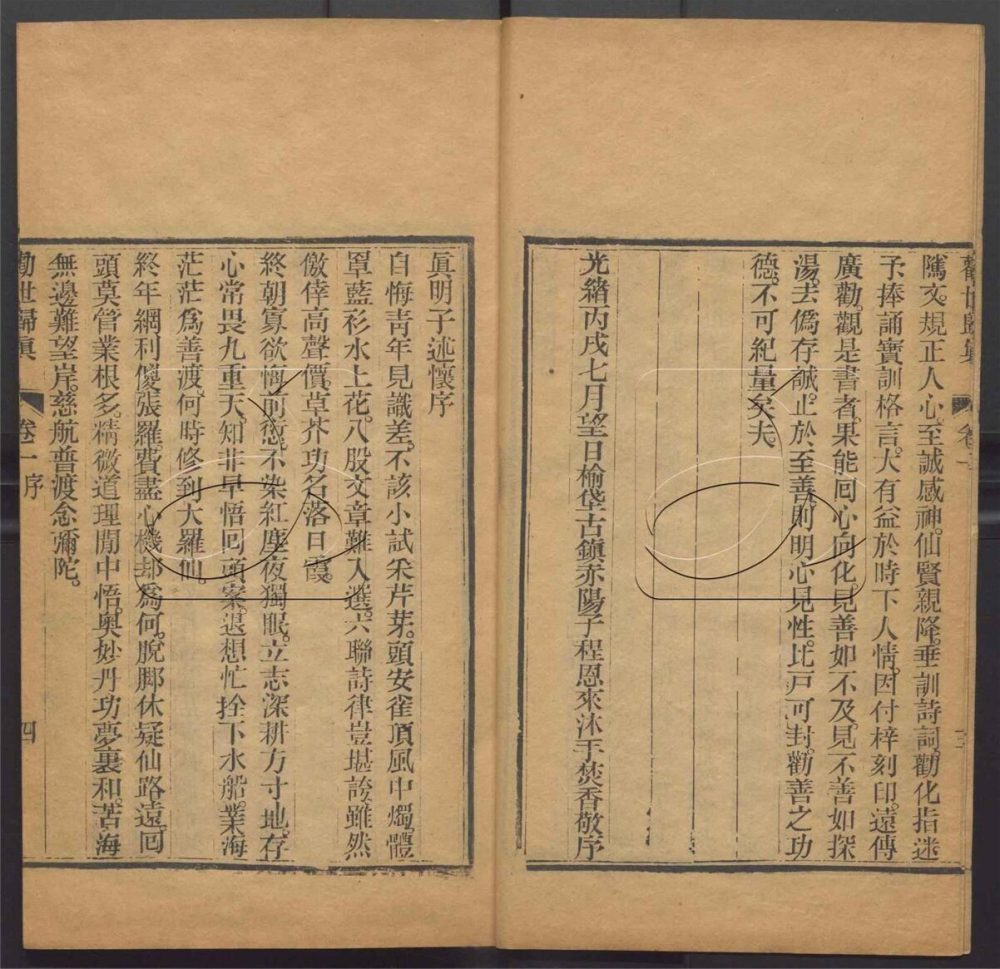 勸世歸真 卷一 三
隲文。規正人心。至誠感神。仙賢親降。垂訓詩詞。勸化指迷
予捧誦實訓格言。大有益於時下人情。因付梓刻印。遠傳
廣勸。觀是書者。果能回心向化。見善如不及。見不善如探
湯。去僞存誠。止於至善。則明心見性。比戶可封。勸善之功
德。不可紀量矣夫。
光緒丙戌七月望日榆垡古鎮赤陽子程恩來沐手焚香敬序
眞明子述懷序
自悔靑年見識差。不該小試采芹芽。頭安雀頂風中燭。體
罩藍衫水上花。八股文章難入選。六聯詩律豈堪誇。雖然
儌倖高聲價。草芥功名落日霞。
終朝寡欲悔前愆。不染紅塵夜獨眠。立志深耕方寸地。存
心常畏九重天。知非早悟回頭案。退想忙拴下水船。業海
茫茫爲善渡。何時修到大羅仙。
終年網利儍張羅。費盡心機却爲何。脫脚休疑仙路遠。回
頭莫管業根多。精微道理閒中悟。奧妙丹功夢裏和。苦海
無邊難望岸。慈航普渡念彌陀。
勸世歸眞 卷一 序 四